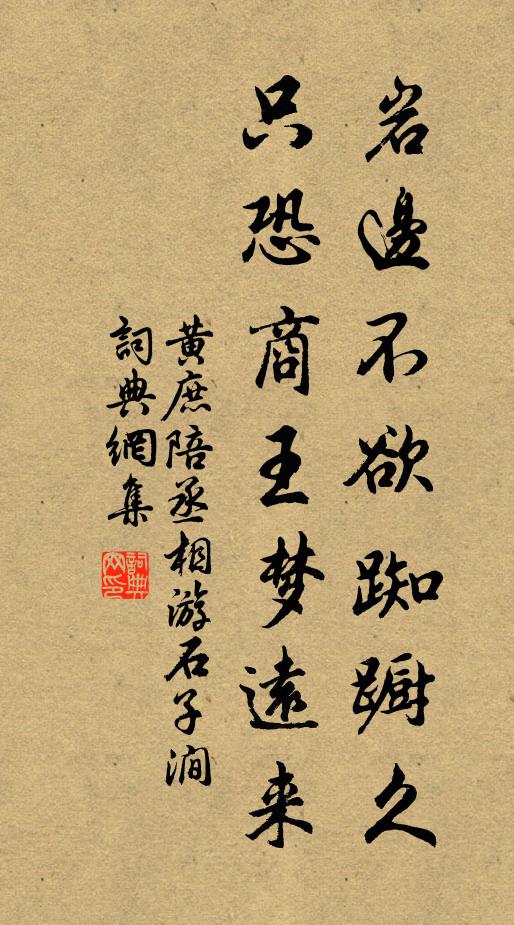 岩邊不欲踟蹰久
只恐商王梦遠来
黄庶陪丞相游石子澗
詞典網集
詞典
网印